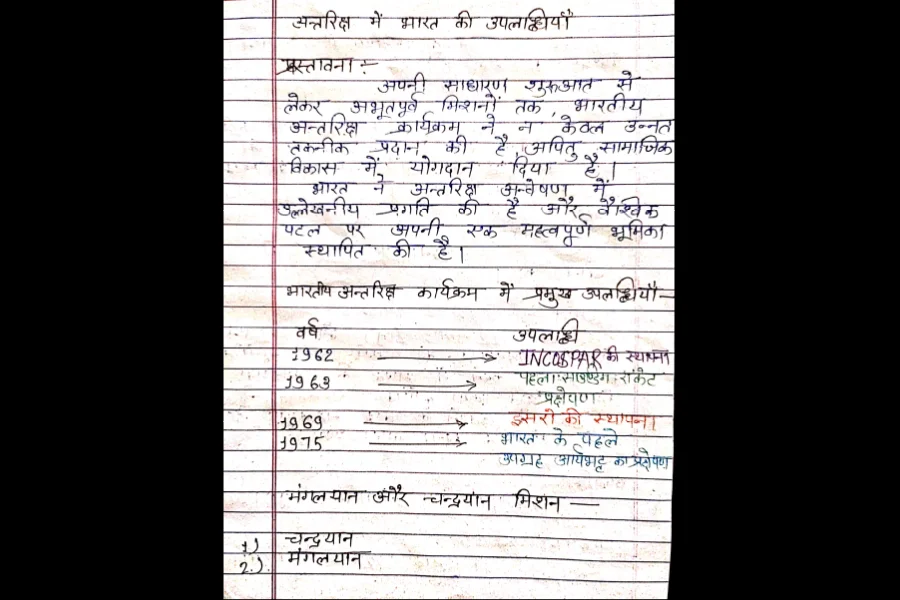 अन्तरिक्ष में भारत की उपलब्धियाँ
प्रस्तावना :-
अपनी साधारण शुरुआत से
लेकर अभूतपूर्व मिशनों तक, भारतीय
अन्तरिक्ष कार्यक्रम ने न केवल उन्नत
तकनीक प्रदान की है अपितु सामाजिक
विकास में योगदान दिया है।
भारत ने अन्तरिक्ष अन्वेषण में
उल्लेखनीय प्रगति की है और वैश्विक
पटल पर अपनी एक महत्वपूर्ण भूमिका
स्थापित की है।
भारतीय अन्तरिक्ष कार्यक्रम में प्रमुख उपलब्धियाँ—
वर्ष उपलब्धि
1962 → INCOSPAR की स्थापना
1963 → पहला साउण्डिंग राकेट
प्रक्षेपण
1969 → इसरो की स्थापना
1975 → भारत के पहले
उपग्रह आर्यभट्ट का प्रक्षेपण
मंगलयान और चन्द्रयान मिशन —
1) चन्द्रयान
2.) मंगलयान